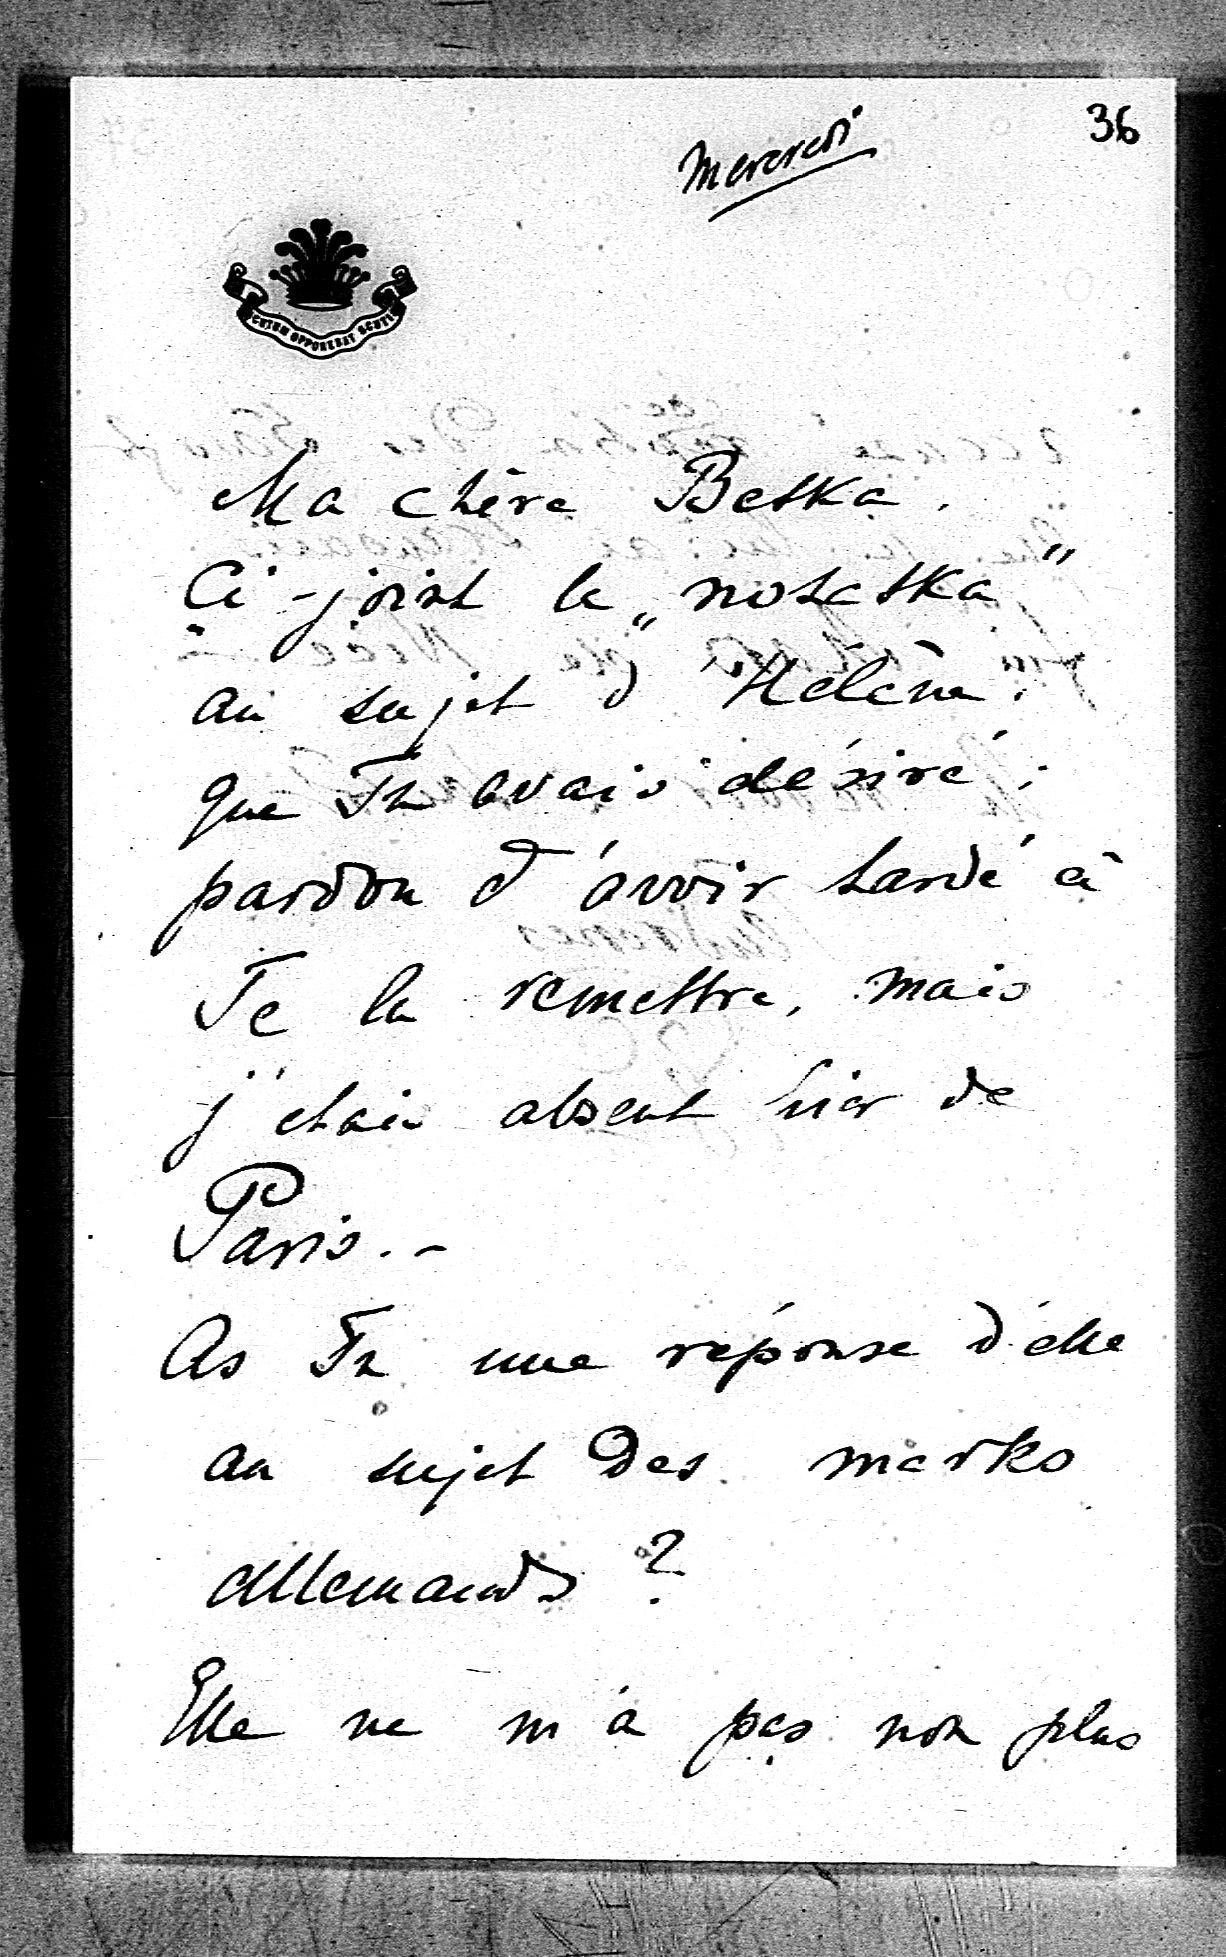 36
Mercredi
SCUTUM OPPONEBAT SCUTIS
Ma chère Betka.
Ci-joint la „notatka"
au sujet d'"Hélène".
que Tu avais désiré;
pardon d'avoir tardé à
Te la remettre, mais
j'étais absent hier de
Paris.-
As Tu une réponse d'elle
au sujet des marks
allemands?
Elle ne m'a pas non plus